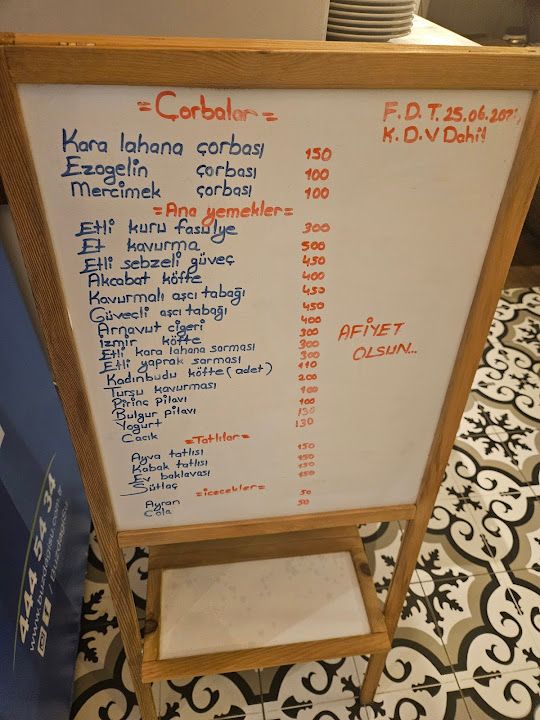 =Çorbalar=
F.D.T. 25.06.202
K.D.V Dahil
Kara lahana çorbası 150
Ezogelin çorbası 100
Mercimek çorbası 100
=Ana yemekler=
Etli kuru fasulye 300
Et kavurma 500
Etli sebzeli güveç 450
Akcabat köfte 400
Kavurmalı aşcı tabağı 450
Güveçli aşcı tabağı 450
Arnavut cigeri 400
izmir köfte 300
Etli kara lahana sarması 300
Etli yaprak sarması 300
Kadınbudu köfte (adet) 110
Turşu kavurması 200
Pirinç pilavı 100
Bulgur pilavı 100
Yogurt 130
Cacık 130
AFİYET
OLSUN...
=Tatlılar=
Ayva tatlısı 150
Kabak tatlısı 150
Ev baklavası 150
Sütlaç 150
=icecekler=
Ayran 50
Cola 50
444 54 34